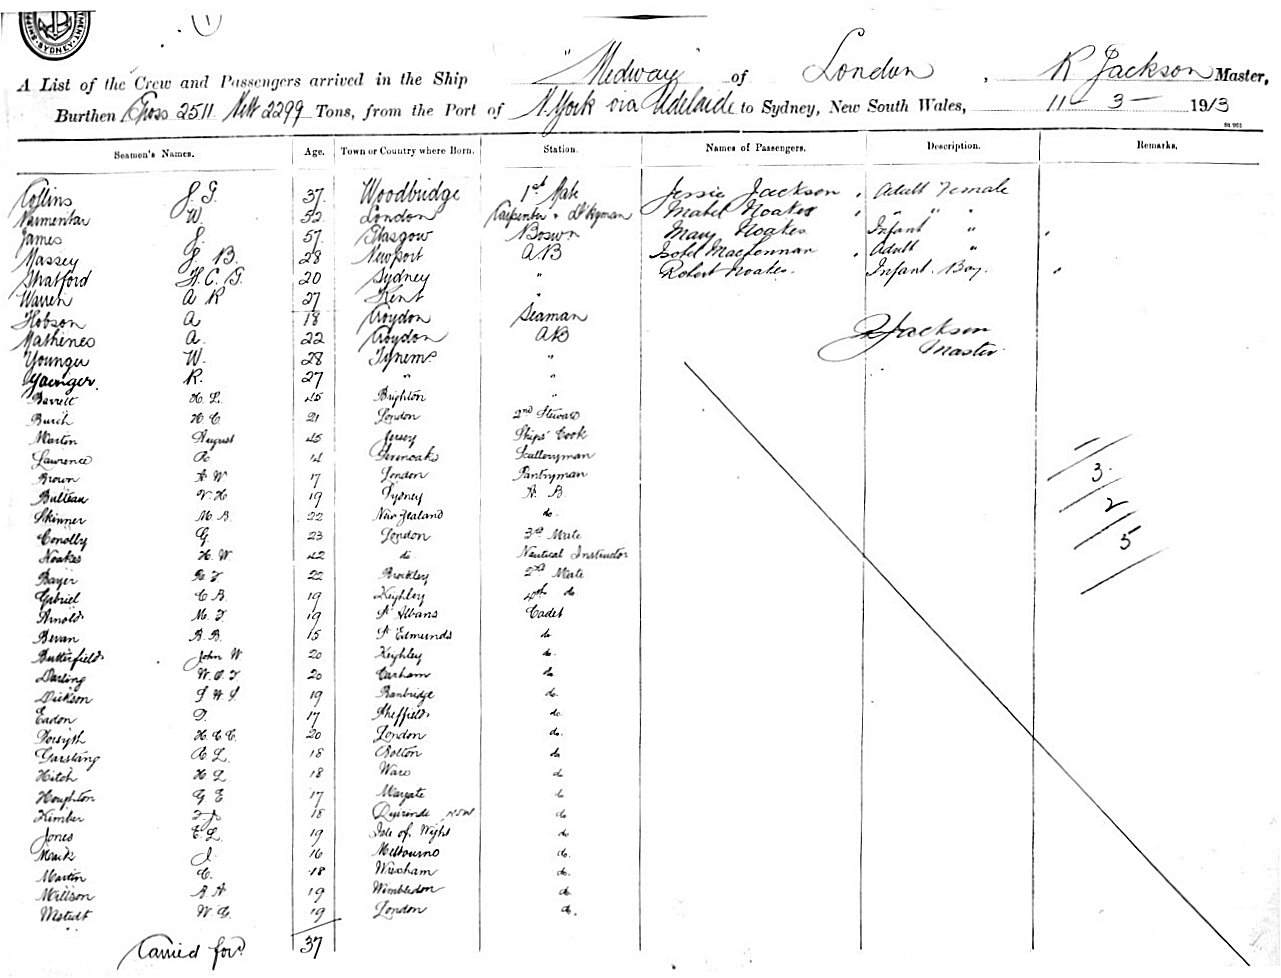 (1)
SYDNEY
A List of the Crew and Passengers arrived in the Ship "Medway" of London, R Jackson Master,
Burthen Gross 2511 Nett 2299 Tons, from the Port of N. York via Adelaide to Sydney, New South Wales, 11-3-1913
Seamen's Names. Age. Town or Country where Born. Station. Names of Passengers. Description. Remarks.
Collins J. G. 37 Woodbridge 1st Mate Jessie Jackson, Adult Female
W. 52 London Carpenter & Dkyman Mabel Noakes, " " "
James J. 57 Glasgow Boswn Mary Noakes Infant "
Massey J. B. 28 Newport AB Isobel MacLennan, Adult "
Stratford H. C. G. 20 Sydney " Robert Noakes. Infant Boy.
Warren A R 27 Kent "
Hobson A 18 Croydon Seaman R Jackson
A. 22 Croydon AB Master
Younger W. 28 "
Younger. R. 27 " "
Barrett H. L. 45 Brighton "
Burch H C 21 London 2nd Steward
Martin August 45 Jersey Ships' Cook
Lawrence R. 14 Sevenoaks Sculleryman
Brown A W 17 London Pantryman 3.
Bulteau V H 19 Sydney A. B 2
Skinner M. B. 22 New Zealand do.
Conolly G. 23 London 3rd Mate 5
Noakes H. W. 42 do Nautical Instructor
Bayer 22 Brockley 2nd Mate
Gabriel C B. 19 Keighley 4th do
Arnold M. F. 19 St Albans Cadet
Bevan B. B. 15 St Edmunds do
Butterfield John W 20 Keighley do.
Darling W. O. F 20 Carham do
Dickson S W S 19 Banbridge do.
Eadon D. 17 Sheffield do.
Forsyth H. C. C. 20 London do.
Garstang R. L. 18 Bolton do
Hitch H L 18 Ware do
Houghton G E 17 Margate do
Kimber F J 18 NSW. do
Jones E. L. 19 Isle of Wight do
J. 16 Melbourne do.
Martin C. 18 Wrexham do.
Millson A. A 19 Wimbledon do.
W. C. 19 London do.
Carried ford 37